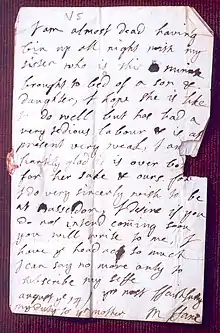 V5
I am almost dead having
bin up all night with my
sister who is this minnute
brought to bed of a son &
daughter, I hope she is like
to do well but has had a
very tedious labour & is at
present very weak, I am
glad it is over both
for her sake & ours for
I do very sincerly wish to be
at I desire if you
do not intend coming soon
you will write to me I
have ye head ach so much
I can say no more only to
subscribe my selfe
august ye 17 yrs most ffaithfully
my duty to yr mother M